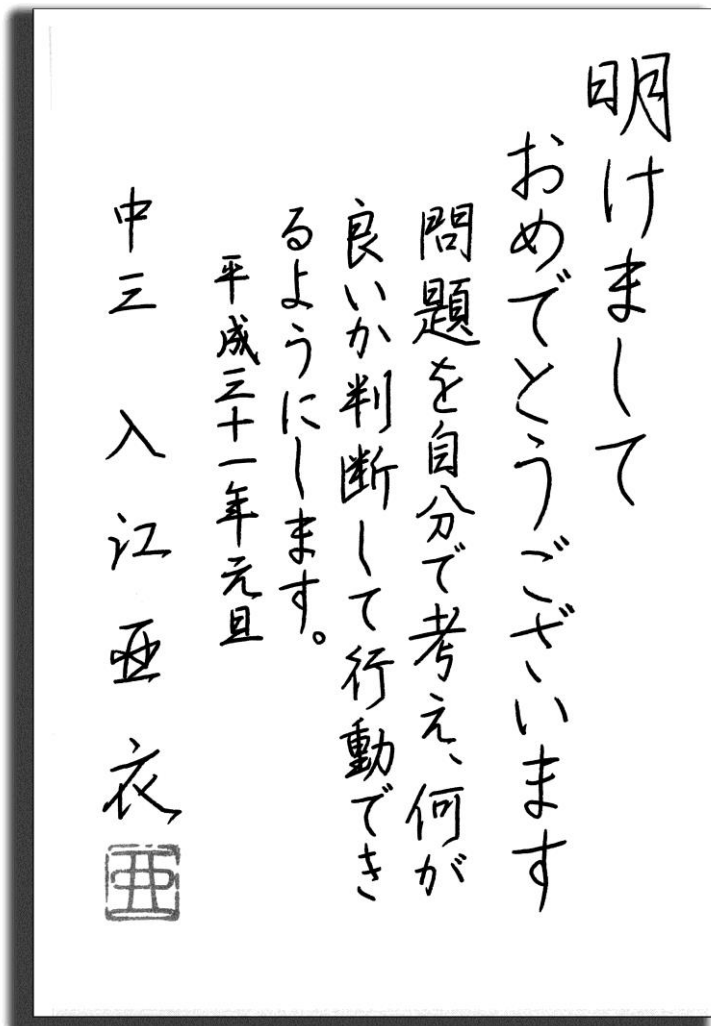 明けまして
おめでとうございます
問題を自分で考え、何が
良いか判断して行動でき
るようにします。
平成三十一年元旦
中三 入江亜衣
亜